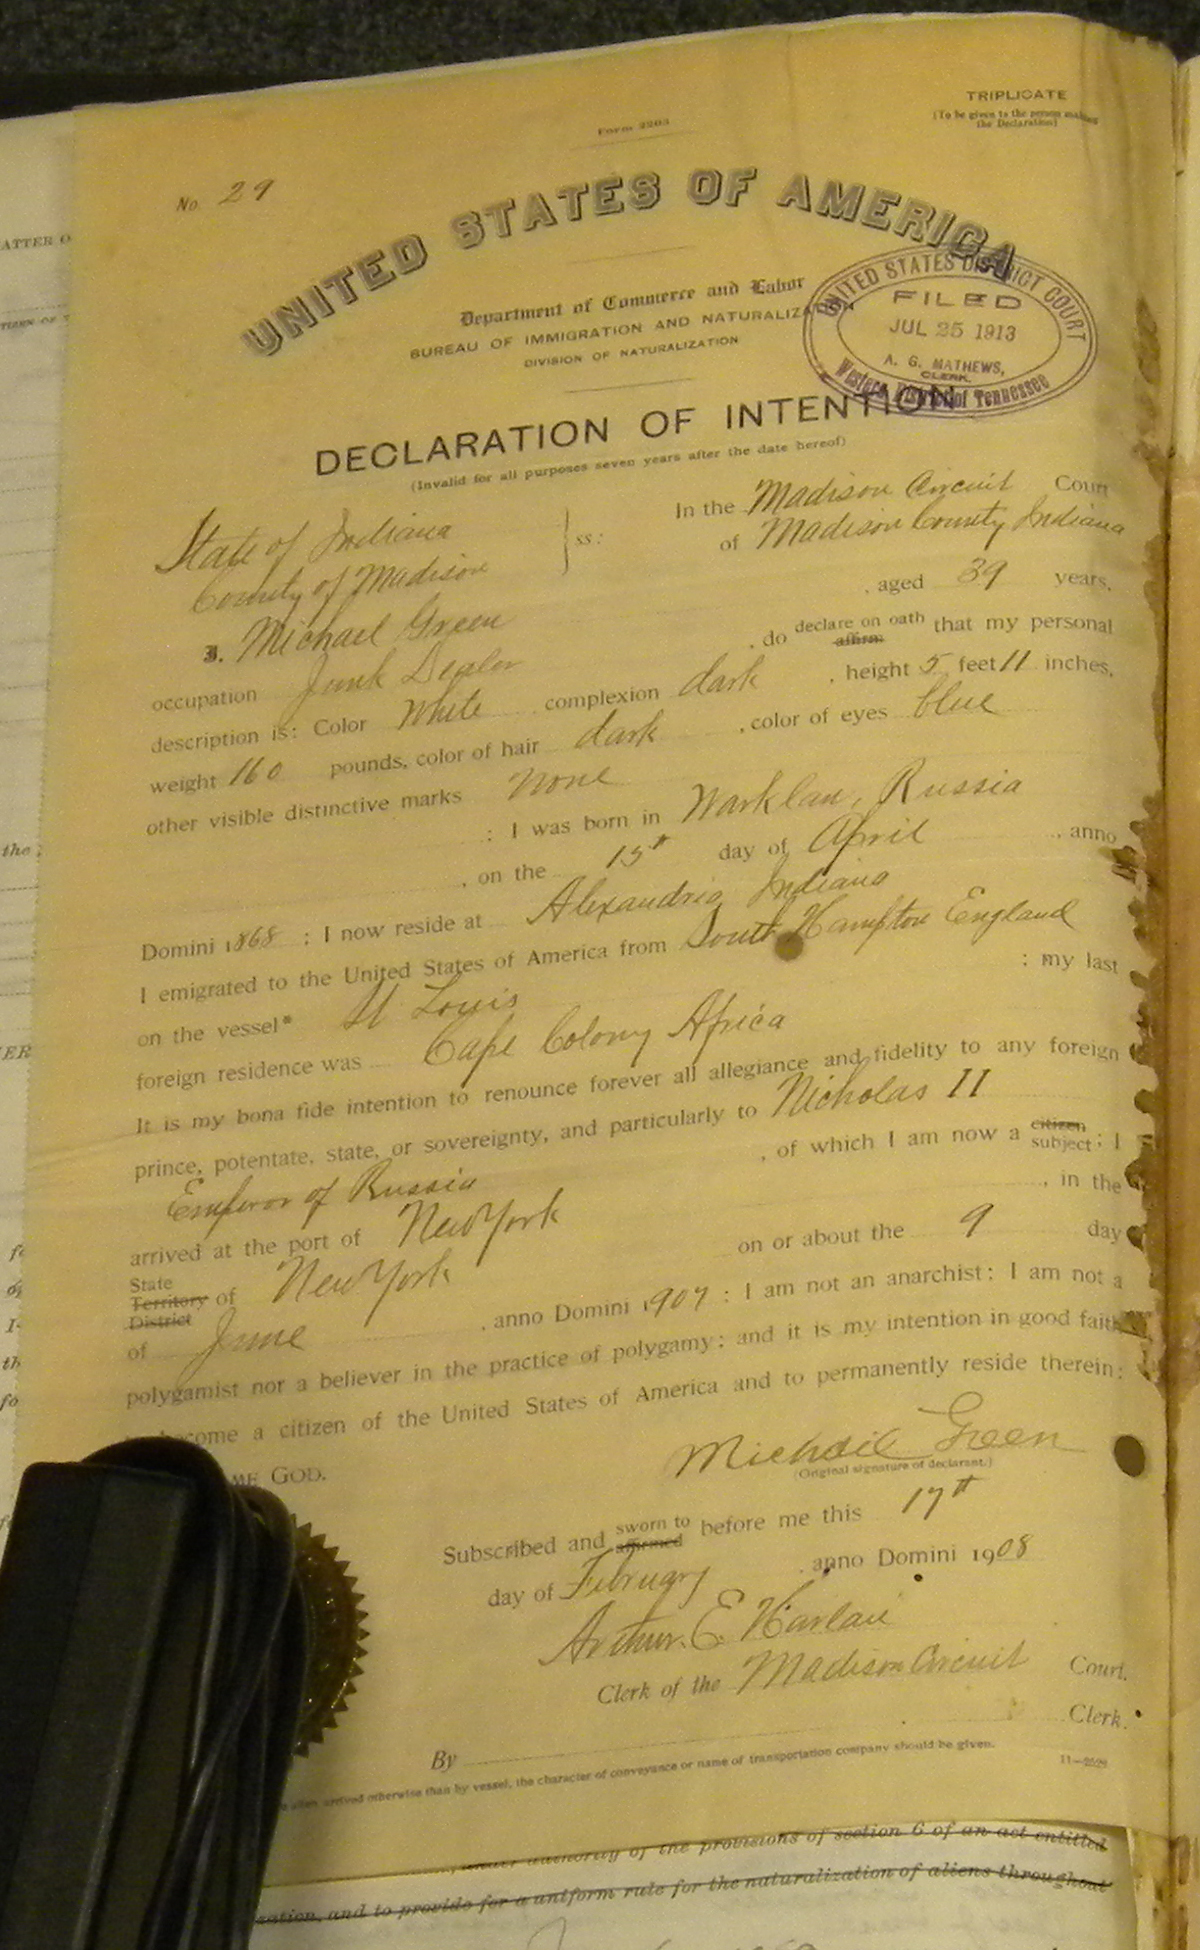 TRIPLICATE
(To be given to the person making
the Declaration)
Form 2203
No. 29
UNITED STATES OF AMERICA
Department of Commerce and Labor
BUREAU OF IMMIGRATION AND NATURALIZAT
DIVISION OF NATURALIZATION
UNITED STATES DISTRICT COURT
FILED
JUL 25 1913
A. G. MATHEWS,
CLERK.
Western District of Tennessee
DECLARATION OF INTENTION
(Invalid for all purposes seven years after the date hereof)
State of Indiana
County of Madison
ss:
In the Madison Circuit Court
of Madison County Indiana
I, Michael Green, aged 39 years,
occupation Junk Dealer, do declare on oath affirm that my personal
description is: Color White complexion dark, height 5 feet 11 inches,
weight 160 pounds, color of hair dark, color of eyes blue
other visible distinctive marks none
: I was born in Warklan, Russia
, on the 15th day of April, anno
Domini 1868 : I now reside at Alexandria Indiana
I emigrated to the United States of America from South Hampton England
on the vessel* St Louis : my last
foreign residence was Cape Colony Africa
It is my bona fide intention to renounce forever all allegiance and fidelity to any foreign
prince, potentate, state, or sovereignty, and particularly to Nicholas II
Emperor of Russia, of which I am now a citizen subject; I
arrived at the port of New York, in the
State Territory District of New York on or about the 9 day
of June, anno Domini 1907 : I am not an anarchist; I am not a
polygamist nor a believer in the practice of polygamy; and it is my intention in good faith
become a citizen of the United States of America and to permanently reside therein:
ME GOD.
Michael Green
(Original signature of declarant.)
Subscribed and sworn to affirmed before me this 17th
day of February, anno Domini 1908
Arthur. E. Harlan
Clerk of the Madison Circuit Court.
By Clerk.
alien arrived otherwise than by vessel, the character of conveyance or name of transportation company should be given.
11—2629
under authority of the provisions of section 6 of an act entitled
and to provide for a uniform rule for the naturalization of aliens throughout